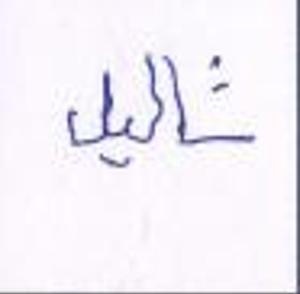 شاليل